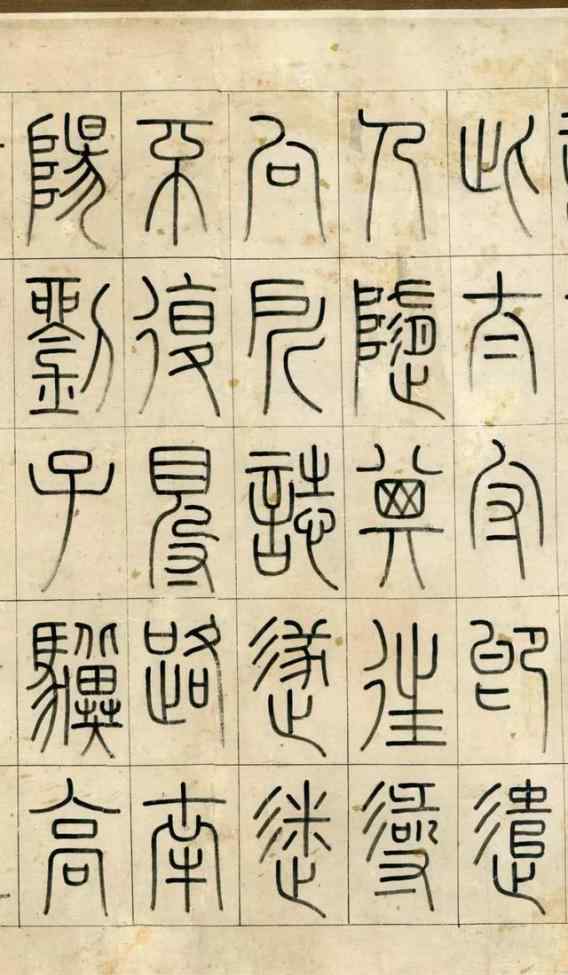 此太守即遣
人隨其往尋
向所誌遂迷
不復得路南
陽劉子驥高